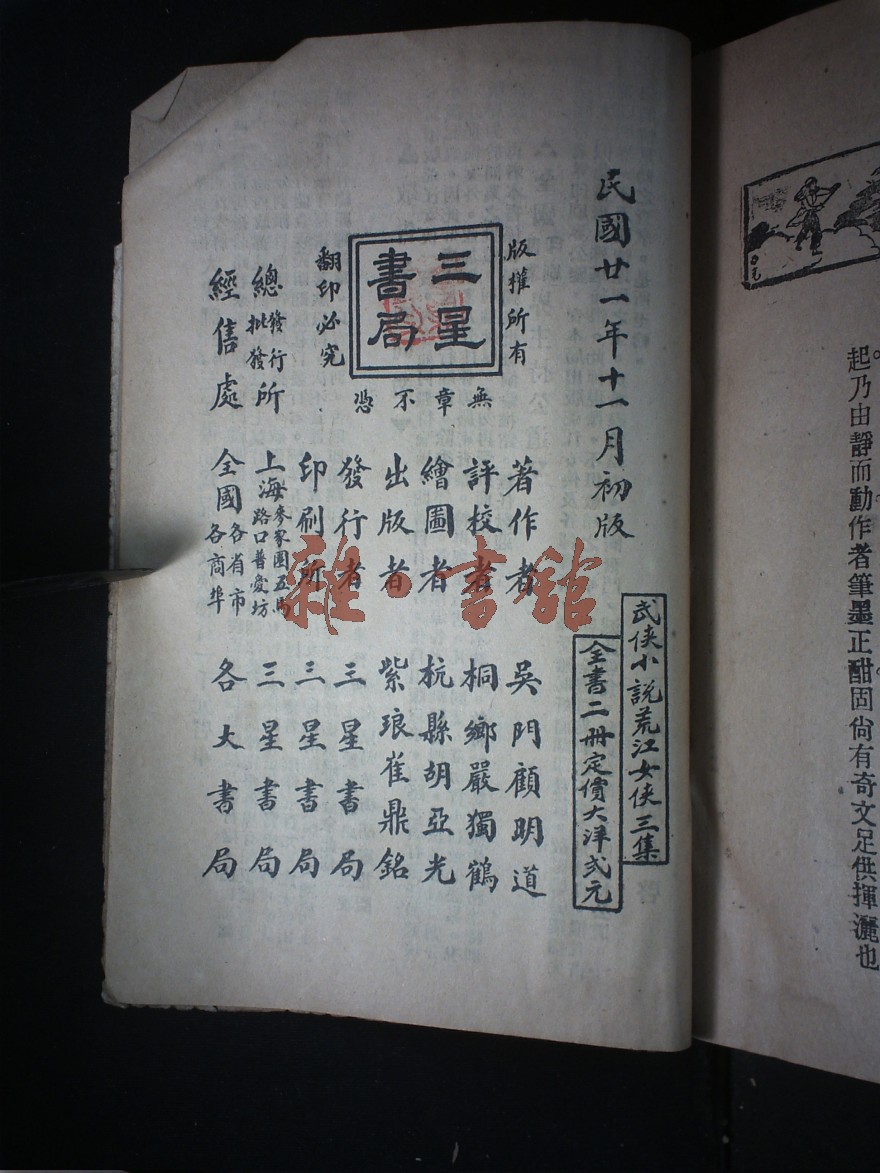 起乃由靜而動作者筆墨正酣固尙有奇文足供揮灑也
民國廿一年十一月初版
武俠小說荒江女俠三集
全書二冊定價大洋弍元
版權所有
三星書局
翻印必究
無章不憑
著作者 吳門顧明道
評校者 桐鄉嚴獨鶴
繪圖者 杭縣胡亞光
出版者 紫琅崔鼎銘
發行者 三星書局
印刷所 三星書局
總發行批發所 上海麥家圈五馬路口普愛坊 三星書局
經售處 全國各省市各商埠 各大書局
雜·書館